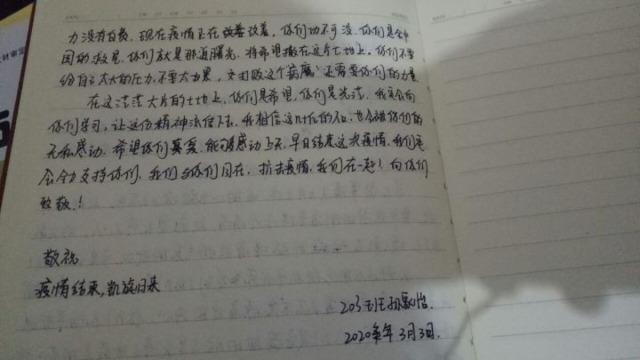 力没有白费。现在疫情正在改善改善,你们功不可没,你们是全中
国的救星,你们就是那道曙光,将希望撒在这片土地上,你们不要
给自己太大的压力,不要太劳累,文明战这个病魔还需要你们的力量
在这茫茫大片的土地上,你们是希望,你们是光芒,我会向
你们学习,让这份精神流传下去,我相信这时代的人,也会被你们的
无私感动,希望你们真爱能够感动上天,早日结束这次疫情,我们定
会全力支持你们,我们与你们同在,抗击疫情,我们在一起!向你们
致敬!
敬祝
疫情结束,凯旋归来
203班
2020年 3月3日.